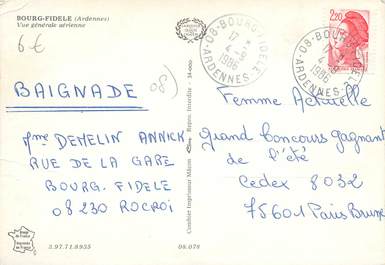 BOURG-FIDELE (Ardennes)
Vue générale aérienne
6€
BAIGNADE
08)
Mme DEMELIN ANNICK
RUE DE LA GARE
BOURG. FIDELE
08230 ROCROI
Image de France
3.97.71.8955
08.078
Combier Imprimeur Mâcon
Repro. Interdite - 34-000
08-BOURG-FIDELE
17
4-9
1986
ARDENNES
08-BOURG-FIDELE
1986
ARDENNES
2,20
Femme Actuelle
grand Concours gagnant
de l'été
Cedex 8032
75601 Paris